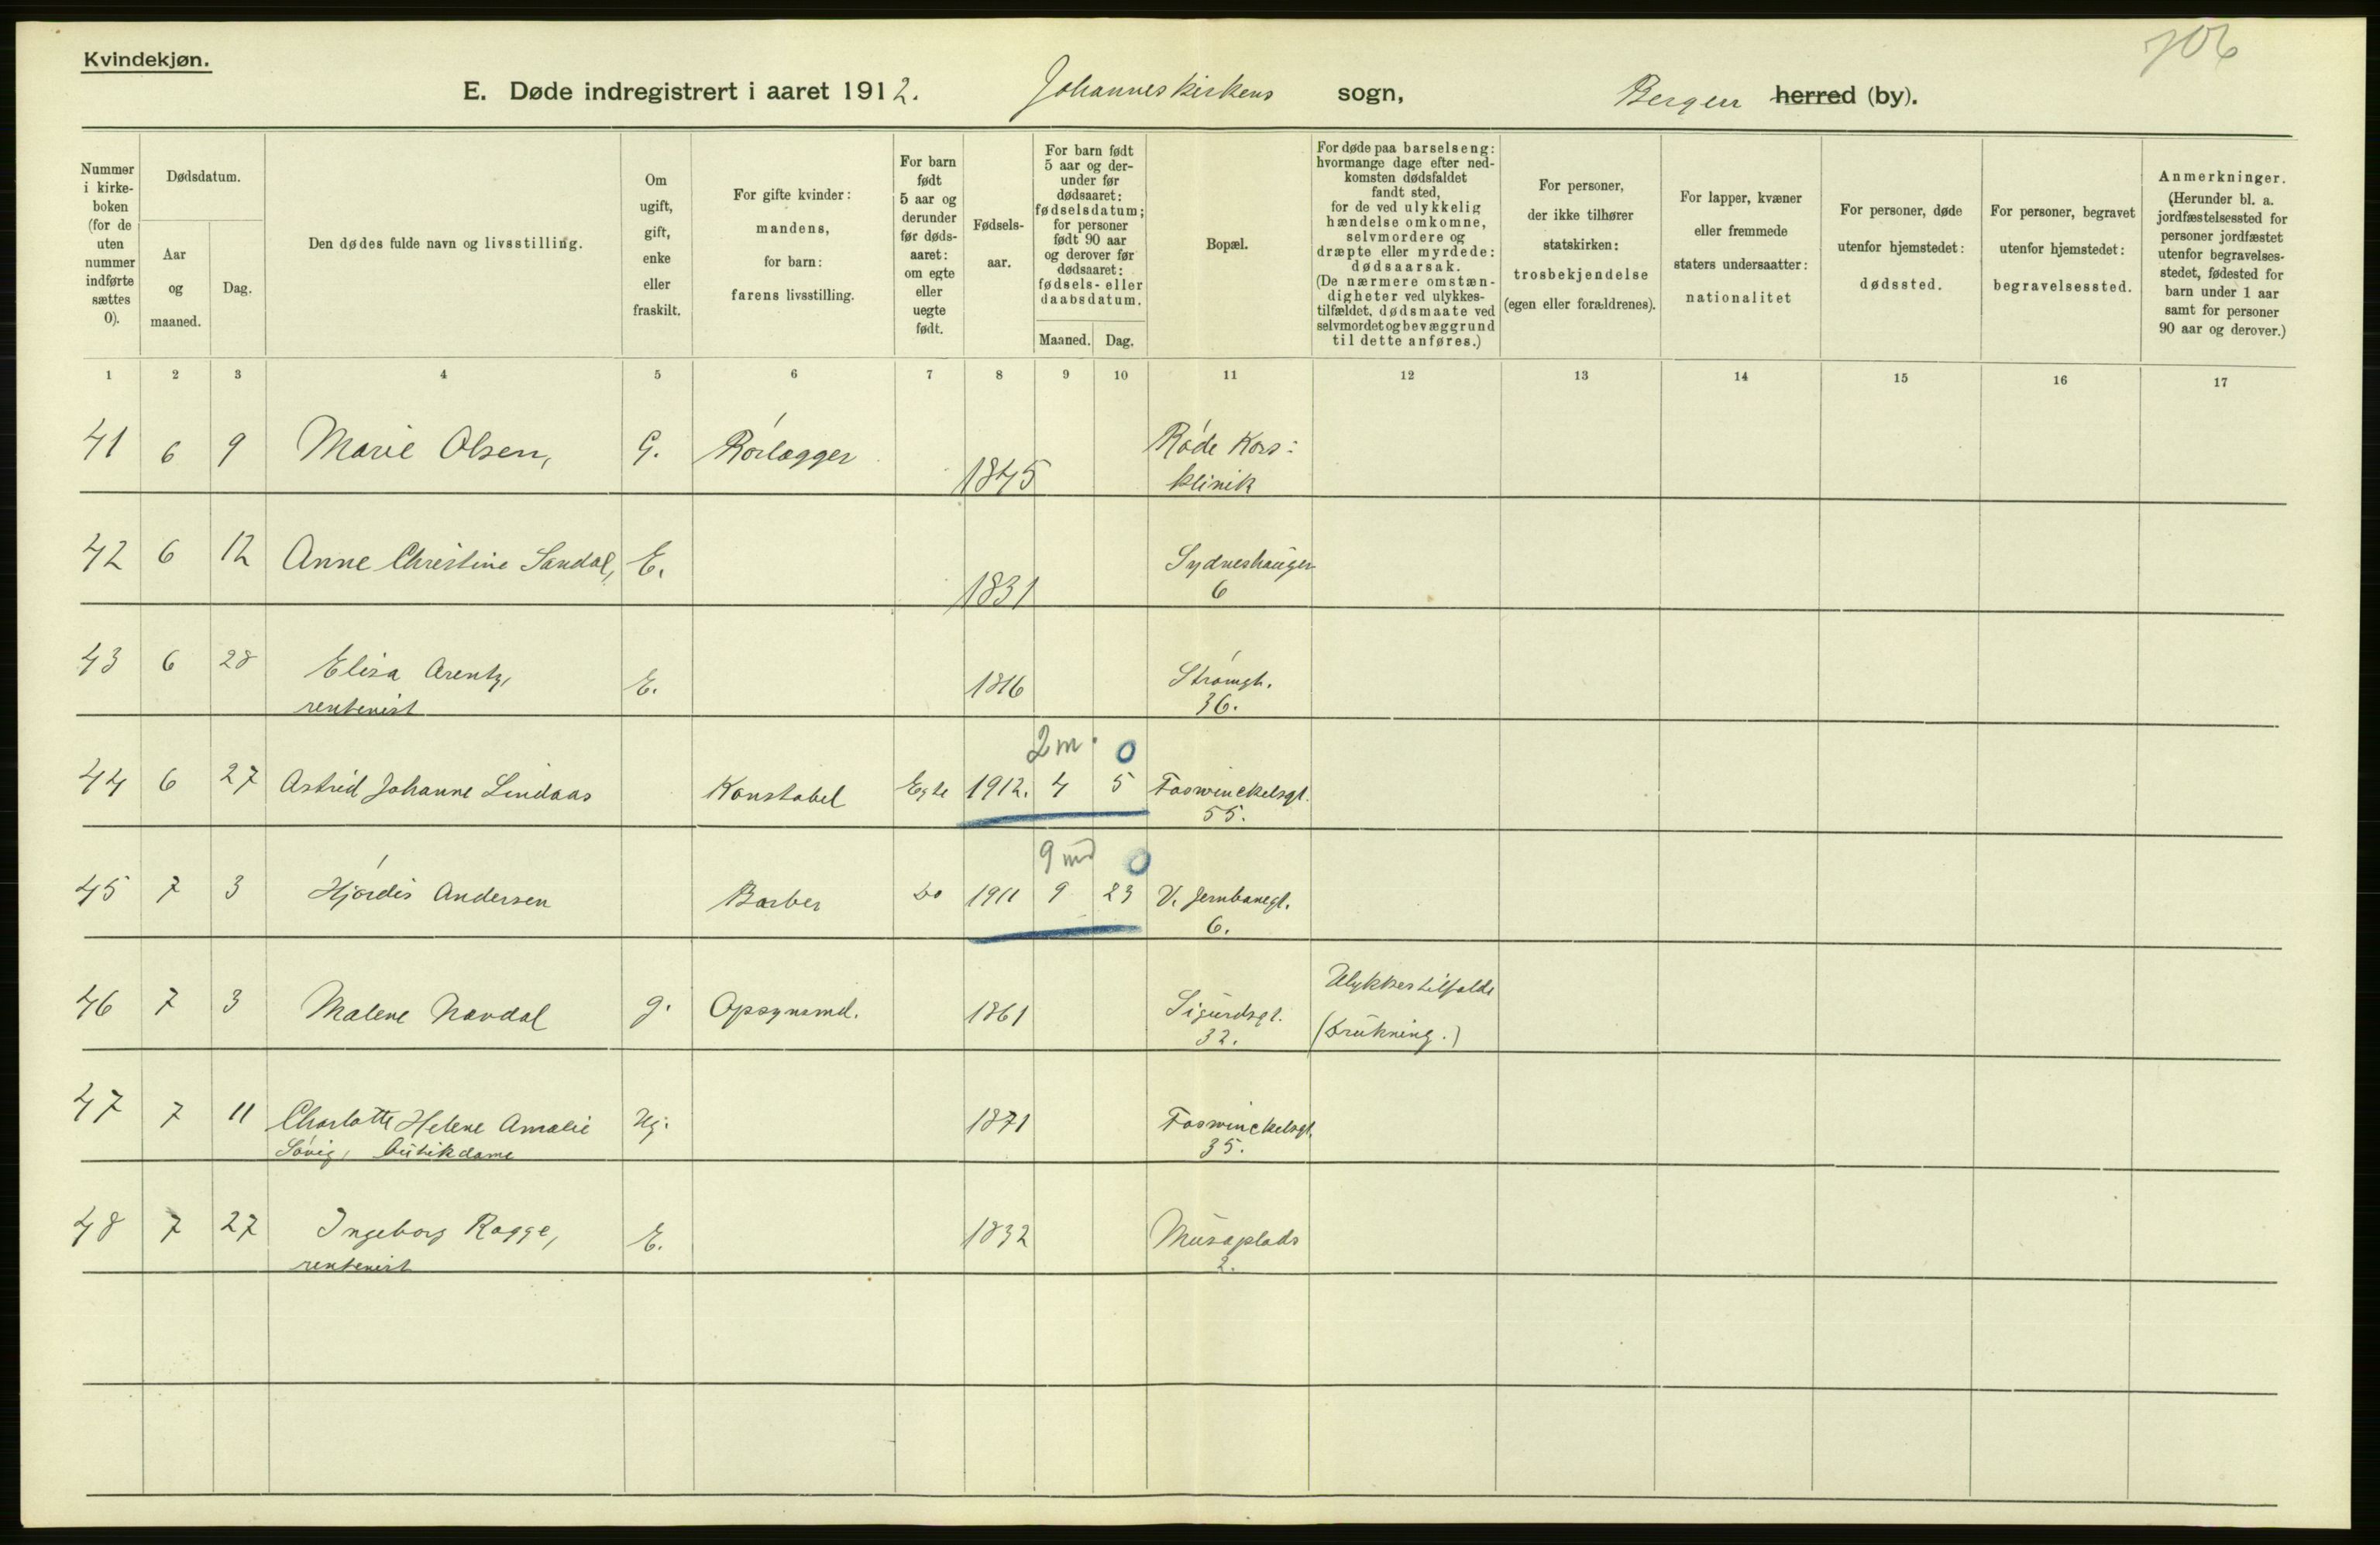 706
Kvindekjøn.
E. Døde indregistrert i aaret 1912. Johanneskirkens sogn, Bergen herred (by).
Nummer i kirke-boken (for de uten nummer indførte sættes 0).
Dødsdatum.
Aar og maaned.
Dag.
Den dødes fulde navn og livsstilling.
Om ugift, gift, enke eller fraskilt.
For gifte kvinder: mandens, for barn: farens livsstilling.
For barn født 5 aar og derunder før døds-aaret: om egte eller uegte født.
Fødsels-aar.
For barn født 5 aar og der-under før dødsaaret: fødselsdatum; for personer født 90 aar og derover før dødsaaret: fødsels- eller daabsdatum.
Maaned. Dag.
Bopæl.
For døde paa barselseng: hvormange dage efter ned-komsten dødsfaldet fandt sted, for de ved ulykkelig hændelse omkomne, selvmordere og dræpte eller myrdede: dødsaarsak. (De nærmere omstæn-digheter ved ulykkes-tilfældet, dødsmaate ved selvmordet og bevæggrund til dette anføres.)
For personer, der ikke tilhører statskirken: trosbekjendelse (egen eller forældrenes).
For lapper, kvæner eller fremmede staters undersaatter: nationalitet
For personer, døde utenfor hjemstedet: dødssted.
For personer, begravet utenfor hjemstedet: begravelsessted.
Anmerkninger. (Herunder bl. a. jordfæstelsessted for personer jordfæstet utenfor begravelses-stedet, fødested for barn under 1 aar samt for personer 90 aar og derover.)
1 2 3 4 5 6 7 8 9 10 11 12 13 14 15 16 17
41 6 9 Marie Olsen, G. Rørlægger 1845 Røde Kors:
klinik
42 6 12 Anne Christine Sandal, E. 1831 Sydneshaugen
6
43 6 28 Elisa Arentz, E. 1816 Strømgt.
rentenist 36.
2 m. 0
44 6 27 Astrid Johanne Lindaas Konstabel Egte 1912. 4 5 Foswinckelsgt.
55.
9 md 0
45 7 3 Hjørdis Andersen Barber Do 1911 9 23 V. Jernbanegt.
6.
46 7 3 Malene Navdal g. Opsynsmd. 1861 Sigurdsgt. Ulykkestilfælde
32. (Drukning.)
47 7 11 Charlotte Helene Amalie Ug. 1871 Foswinckelsgt.
Søvig, Butikdame 35.
48 7 27 Ingeborg Rogge, E. 1832 Muséplads
rentenist 2.